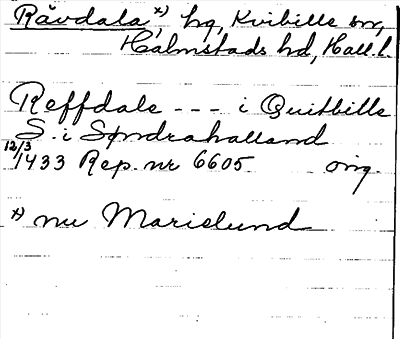 Rävdala, x) hg, Kvibille sn,
Halmstads hd, Hall. l.
Reffdale --- i Quitbille
S. i Sỏndrahalland
12/3 1433 Rep. nr 6605 orig.
x) nu Marielund